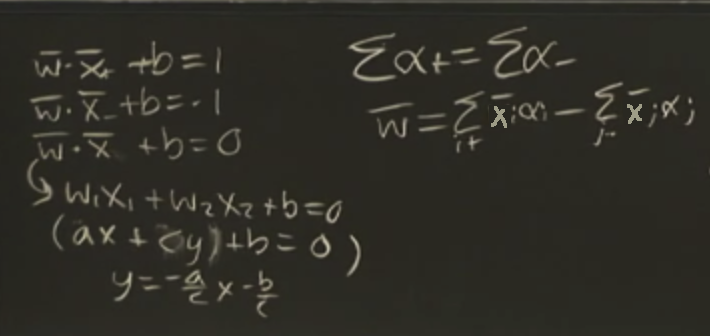 w̅·x̅₊ + b = 1
w̅·x̅₋ + b = -1
w̅·x̅ + b = 0
w₁x₁ + w₂x₂ + b = 0
(ax + cy) + b = 0)
y = -a/c x - b/c
Σα₊ = Σα₋
w̅ = Σ_{i+} x̅ᵢαᵢ - Σ_{j-} x̅ⱼαⱼ